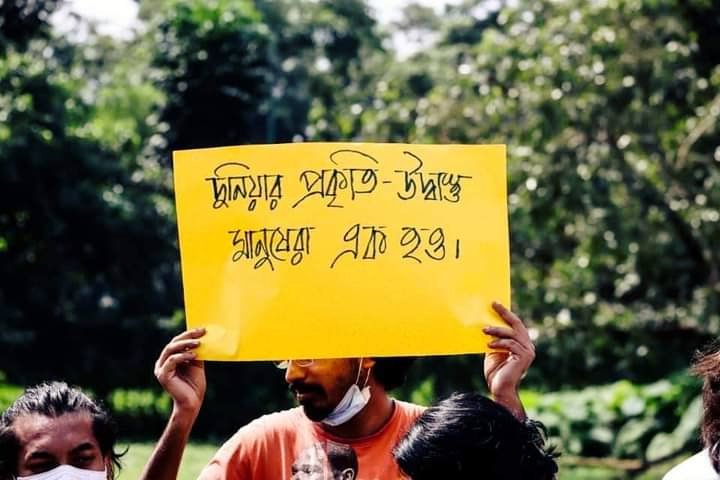 দুনিয়ার প্রকৃতি-উদ্বাস্তু
মানুষেরা এক হও।